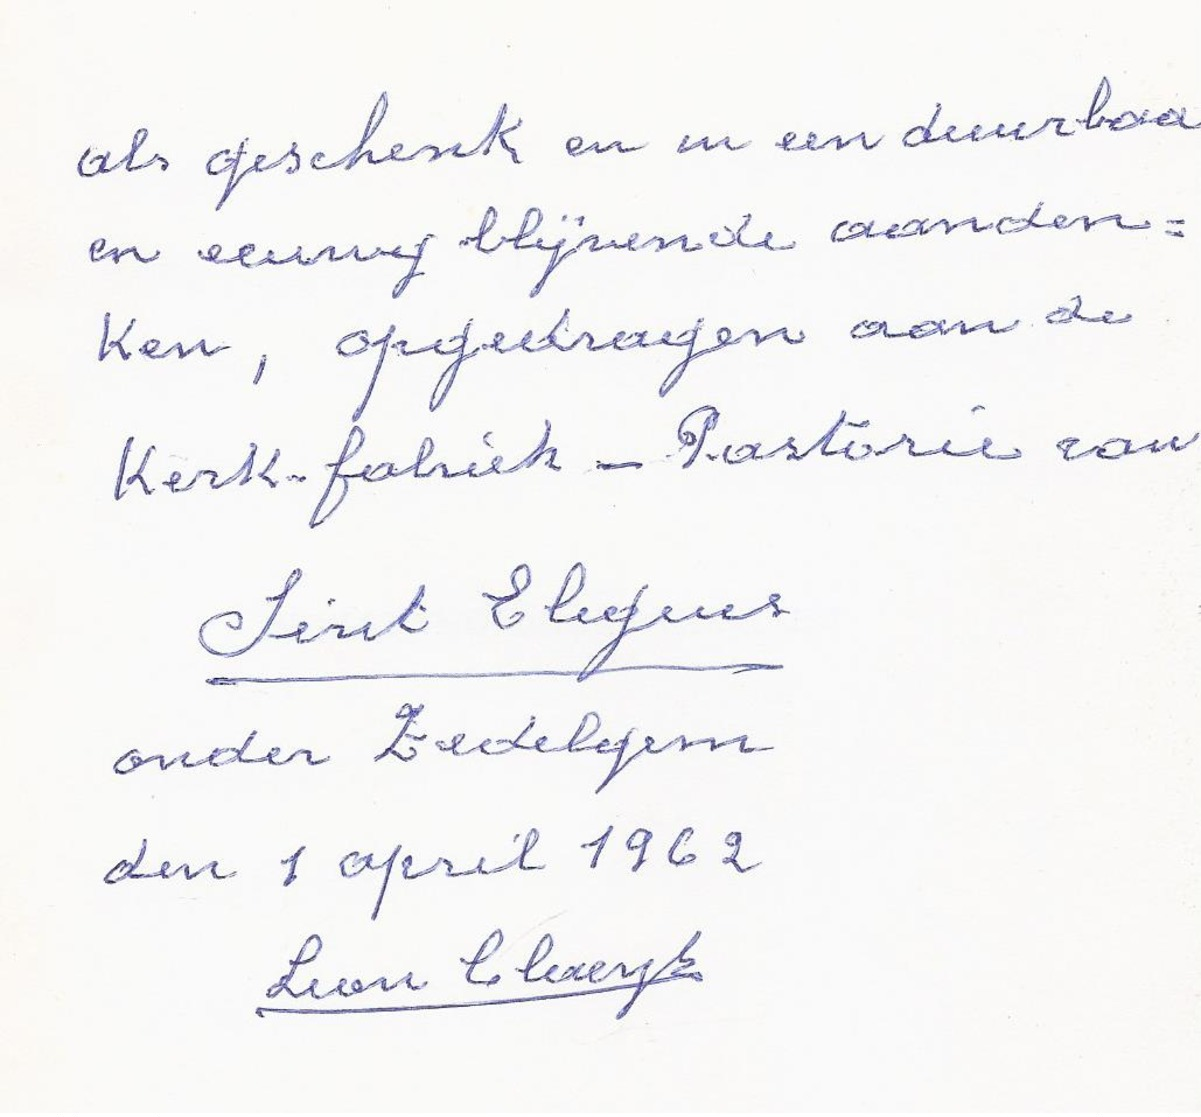 als geschenk en in een duurbaa
en eeuwig blijvende aanden=
ken, opgedragen aan de
Kerk-fabriek – Pastorie van
Sint Elegius
onder Zedelgem
den 1 april 1962
Leon